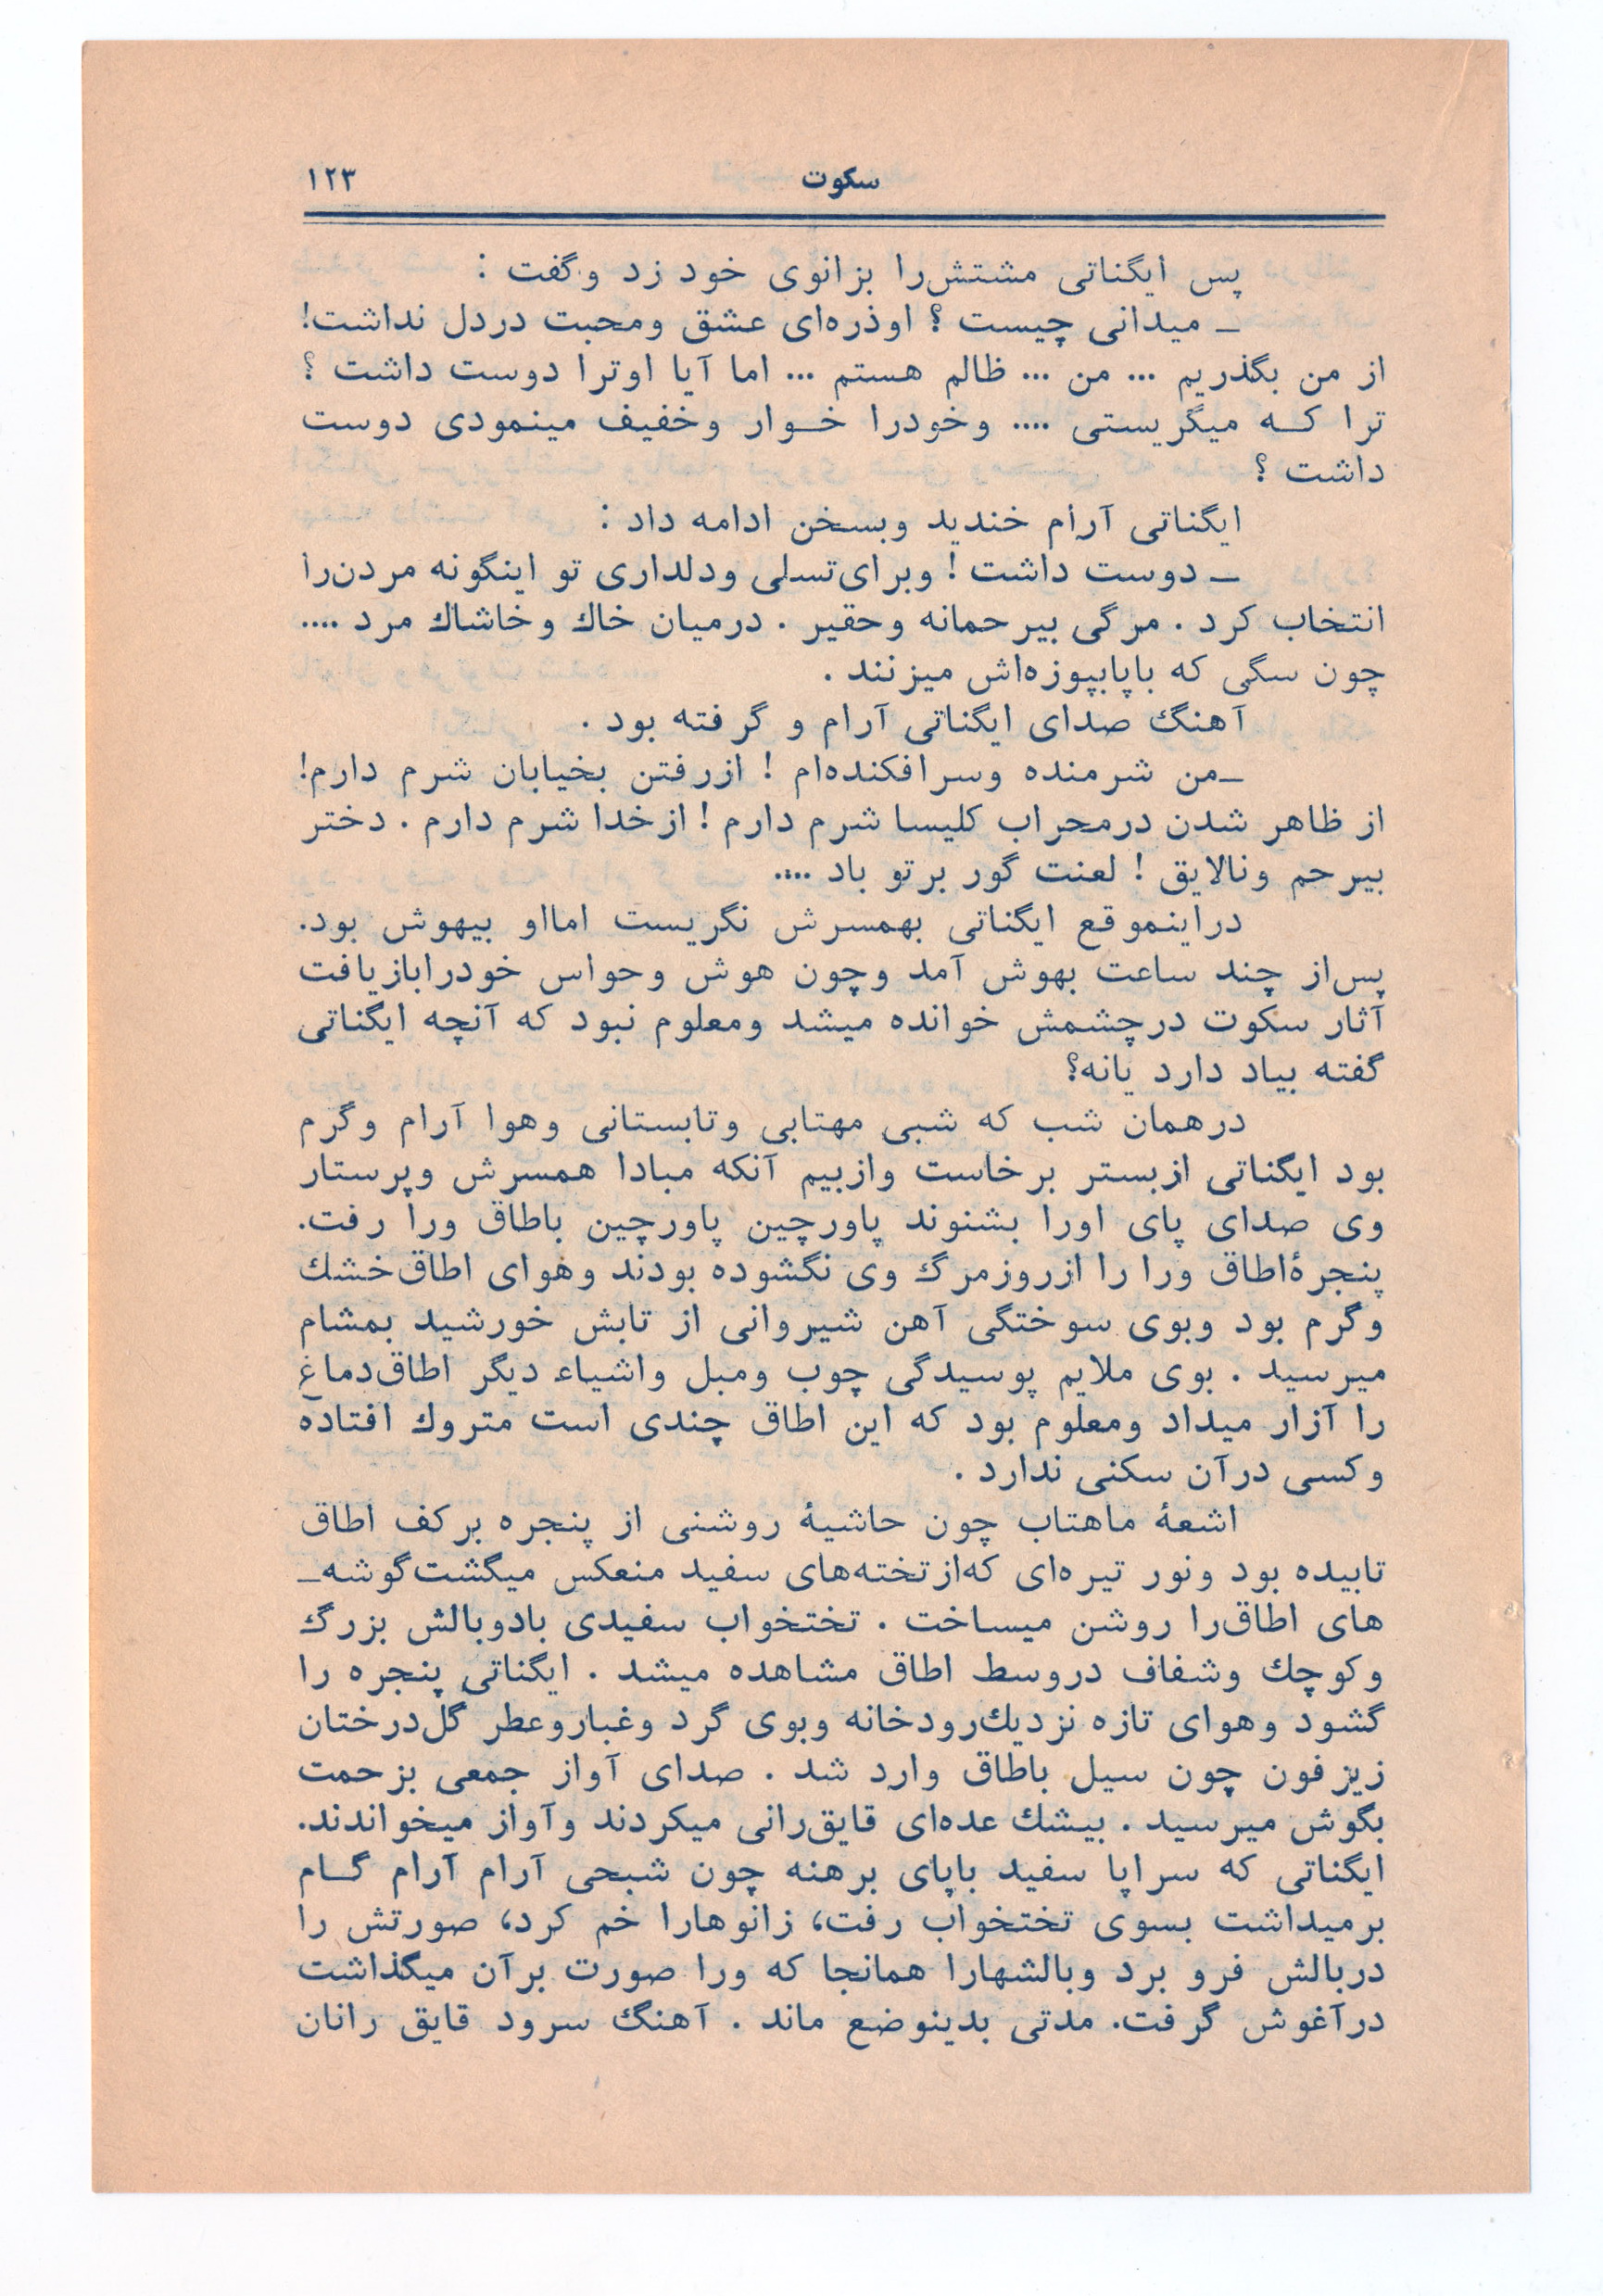 سکوت ۱۲۳
پس ایگناتی مشتش‌را بزانوی خود زد وگفت :
ـ میدانی چیست ؟ اوذره‌ای عشق ومحبت دردل نداشت!
از من بگذریم ... من ... ظالم هستم ... اما آیا اوترا دوست داشت ؟
ترا کـه میگریستی .... وخودرا خـوار وخفیف مینمودی دوست
داشت ؟
ایگناتی آرام خندید وبسخن ادامه داد :
ـ دوست داشت ! وبرای‌تسلی ودلداری تو اینگونه مردن‌را
انتخاب کرد . مرگی بیرحمانه وحقیر . درمیان خاك وخاشاك مرد ....
چون سگی که باپابپوزه‌اش میزنند .
آهنگ صدای ایگناتی آرام و گرفته بود .
ـمن شرمنده وسرافکنده‌ام ! ازرفتن بخیابان شرم دارم!
از ظاهر شدن درمحراب کلیسا شرم دارم ! ازخدا شرم دارم . دختر
بیرحم ونالایق ! لعنت گور برتو باد ....
دراینموقع ایگناتی بهمسرش نگریست امااو بیهوش بود.
پس‌از چند ساعت بهوش آمد وچون هوش وحواس خودرابازیافت
آثار سکوت درچشمش خوانده میشد ومعلوم نبود که آنچه ایگناتی
گفته بیاد دارد یانه؟
درهمان شب که شبی مهتابی وتابستانی وهوا آرام وگرم
بود ایگناتی ازبستر برخاست وازبیم آنکه مبادا همسرش وپرستار
وی صدای پای اورا بشنوند پاورچین پاورچین باطاق ورا رفت.
پنجرهٔ‌اطاق ورا را ازروزمرگ وی نگشوده بودند وهوای اطاق‌خشك
وگرم بود وبوی سوختگی آهن شیروانی از تابش خورشید بمشام
میرسید . بوی ملایم پوسیدگی چوب ومبل واشیاء دیگر اطاق‌دماغ
را آزار میداد ومعلوم بود که این اطاق چندی است متروك افتاده
وکسی درآن سکنی ندارد .
اشعهٔ ماهتاب چون حاشیهٔ روشنی از پنجره برکف اطاق
تابیده بود ونور تیره‌ای که‌ازتخته‌های سفید منعکس میگشت‌گوشه‌ـ
های اطاق‌را روشن میساخت . تختخواب سفیدی بادوبالش بزرگ
وکوچك وشفاف دروسط اطاق مشاهده میشد . ایگناتی پنجره را
گشود وهوای تازه نزدیك‌رودخانه وبوی گرد وغباروعطر گل‌درختان
زیزفون چون سیل باطاق وارد شد . صدای آواز جمعی بزحمت
بگوش میرسید . بیشك عده‌ای قایق‌رانی میکردند وآواز میخواندند.
ایگناتی که سراپا سفید باپای برهنه چون شبحی آرام آرام گـام
برمیداشت بسوی تختخواب رفت، زانوهارا خم کرد، صورتش را
دربالش فرو برد وبالشهارا همانجا که ورا صورت برآن میگذاشت
درآغوش گرفت. مدتی بدینوضع ماند . آهنگ سرود قایق رانان